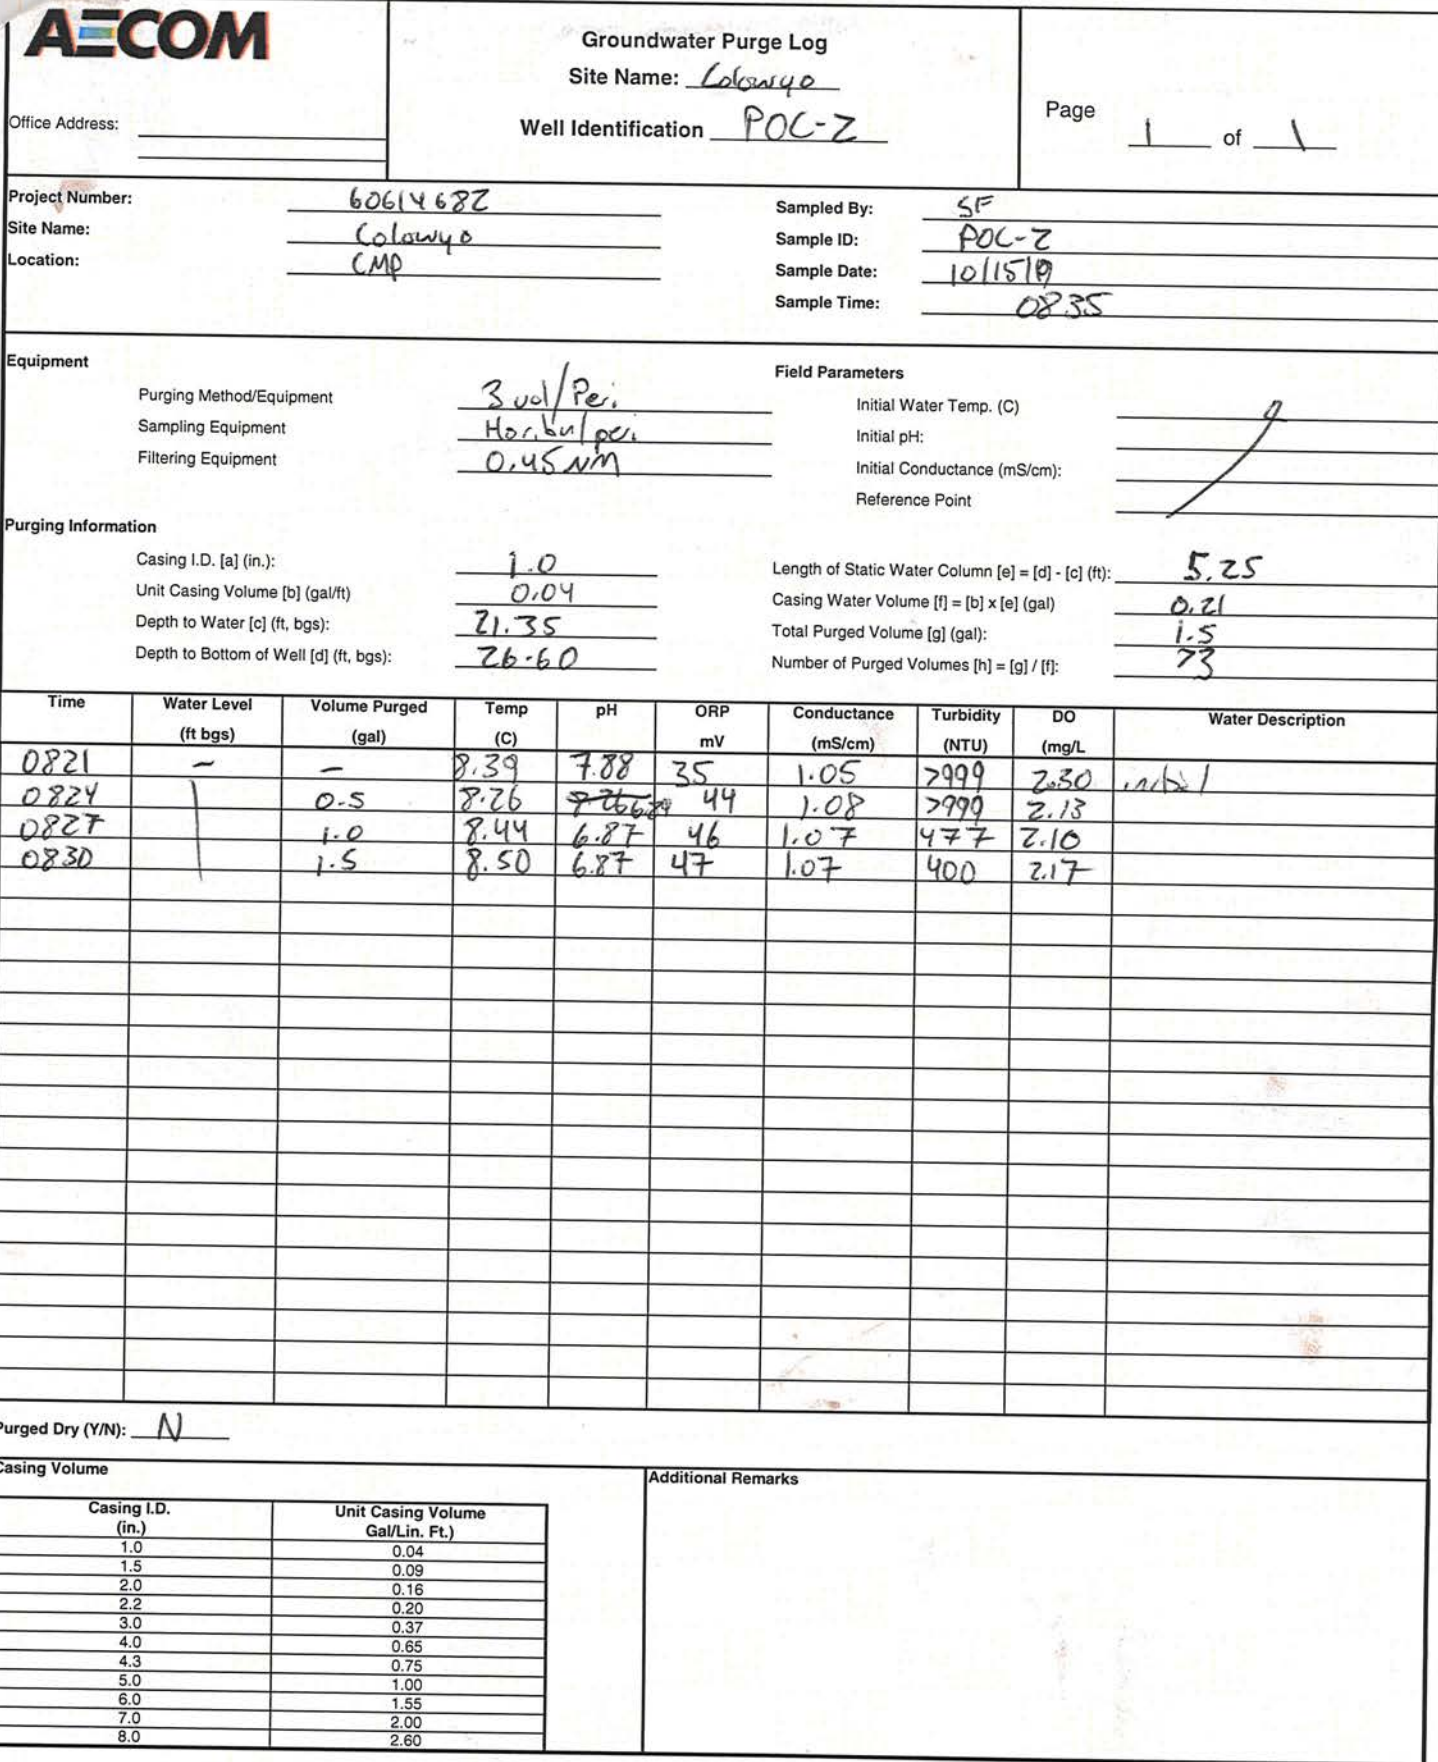 AECOM
Groundwater Purge Log
Site Name: Colowyo
Well Identification POC-2
Page 1 of 1
Office Address:
Project Number: 60614682
Site Name: Colowyo
Location: CMP
Sampled By: SF
Sample ID: POC-2
Sample Date: 10/15/19
Sample Time: 0835
Equipment
Purging Method/Equipment 3 vol/Peri.
Sampling Equipment Horiba/peri
Filtering Equipment 0.45 NM
Field Parameters
Initial Water Temp. (C)
Initial pH:
Initial Conductance (mS/cm):
Reference Point
Purging Information
Casing I.D. [a] (in.): 1.0
Unit Casing Volume [b] (gal/ft) 0.04
Depth to Water [c] (ft, bgs): 21.35
Depth to Bottom of Well [d] (ft, bgs): 26.60
Length of Static Water Column [e] = [d] - [c] (ft): 5.25
Casing Water Volume [f] = [b] x [e] (gal) 0.21
Total Purged Volume [g] (gal): 1.5
Number of Purged Volumes [h] = [g] / [f]: >3
Time Water Level (ft bgs) Volume Purged (gal) Temp (C) pH ORP mV Conductance (mS/cm) Turbidity (NTU) DO (mg/L Water Description
0821 – – 8.39 7.88 35 1.05 >999 2.30 initial
0824 0.5 8.26 8.26 6.89 44 1.08 >999 2.13
0827 1.0 8.44 6.87 46 1.07 477 2.10
0830 1.5 8.50 6.87 47 1.07 400 2.17
Purged Dry (Y/N): N
Casing Volume
Casing I.D. (in.) Unit Casing Volume Gal/Lin. Ft.)
1.0 0.04
1.5 0.09
2.0 0.16
2.2 0.20
3.0 0.37
4.0 0.65
4.3 0.75
5.0 1.00
6.0 1.55
7.0 2.00
8.0 2.60
Additional Remarks